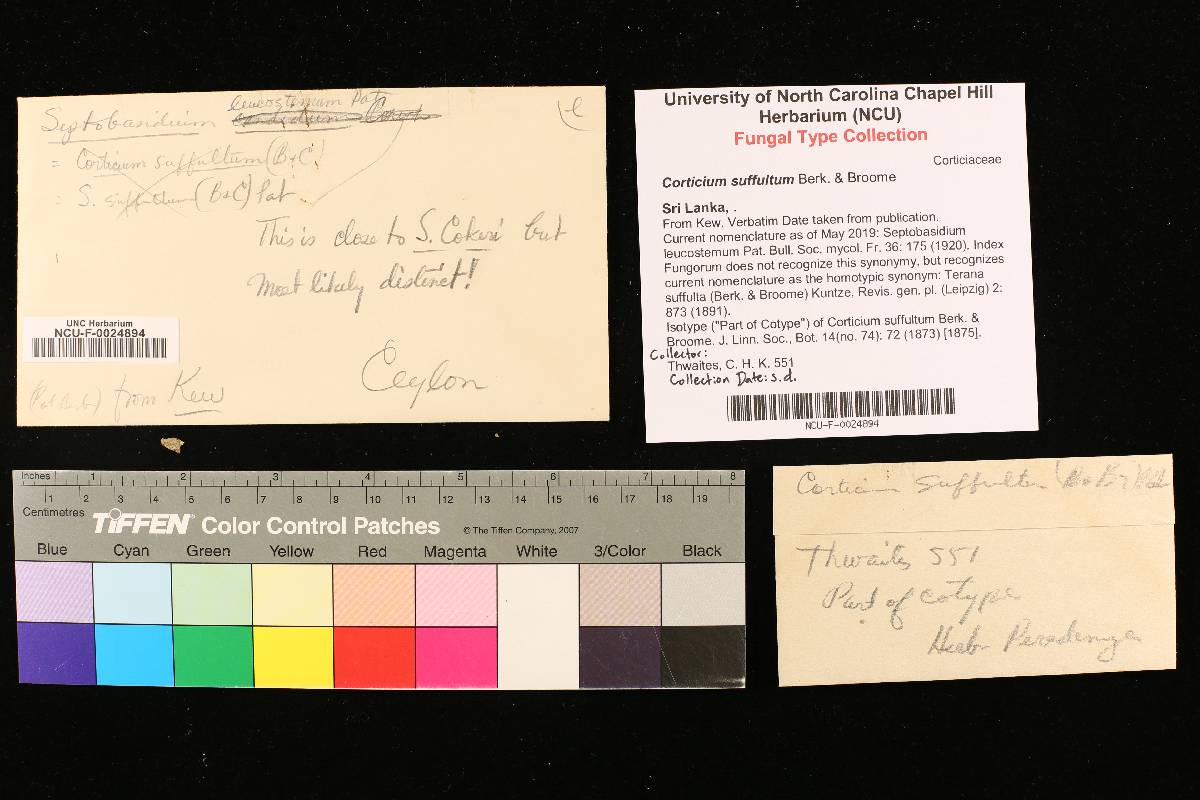 leucostemum Pat.
Septobasidium
= Corticium suffultum (B+C)
= S. suffultum (B&C) Pat
This is close to S. Cokeri but
most likely distinct!
UNC Herbarium
NCU-F-0024894
from Kew
Ceylon
University of North Carolina Chapel Hill
Herbarium (NCU)
Fungal Type Collection
Corticiaceae
Corticium suffultum Berk. & Broome
Sri Lanka, .
From Kew. Verbatim Date taken from publication.
Current nomenclature as of May 2019: Septobasidium
leucostemum Pat. Bull. Soc. mycol. Fr. 36: 175 (1920). Index
Fungorum does not recognize this synonymy, but recognizes
current nomenclature as the homotypic synonym: Terana
suffulta (Berk. & Broome) Kuntze, Revis. gen. pl. (Leipzig) 2:
873 (1891).
Isotype ("Part of Cotype") of Corticium suffultum Berk. &
Broome. J. Linn. Soc., Bot. 14(no. 74): 72 (1873) [1875].
Collector:
Thwaites, C. H. K. 551
Collection Date: s.d.
NCU-F-0024894
Inches 1 2 3 4 5 6 7 8
1 2 3 4 5 6 7 8 9 10 11 12 13 14 15 16 17 18 19
Centimetres
TIFFEN® Color Control Patches © The Tiffen Company, 2007
Blue Cyan Green Yellow Red Magenta White 3/Color Black
Thwaites 551
Part of cotype